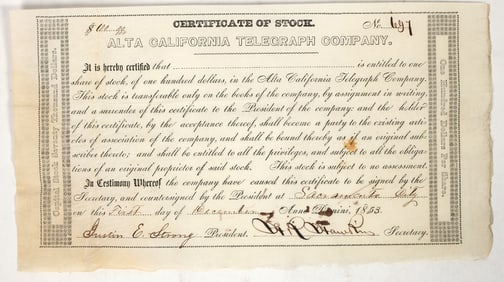 CERTIFICATE OF STOCK.
$100
No. 697
ALTA CALIFORNIA TELEGRAPH COMPANY.
It is hereby certified that is entitled to one
share of stock, of one hundred dollars, in the Alta California Telegraph Company.
This stock is transferable only on the books of the company, by assignment in writing,
and a surrender of this certificate to the President of the company: and the holder
of this certificate, by the acceptance thereof, shall become a party to the existing arti-
cles of association of the company, and shall be bound thereby as if an original sub-
scriber thereto; and shall be entitled to all the privileges, and subject to all the obliga-
tions of an original proprietor of said stock. This stock is subject to no assessment.
In Testimony Whereof the company have caused this certificate to be signed by the
Secretary, and countersigned by the President at Sacramento City
on this First day of December Anno Domini, 1853.
Justin E. Strong President. Secretary.
Capital Stock Seventy Thousand Dollars.
One Hundred Dollars Per Share.